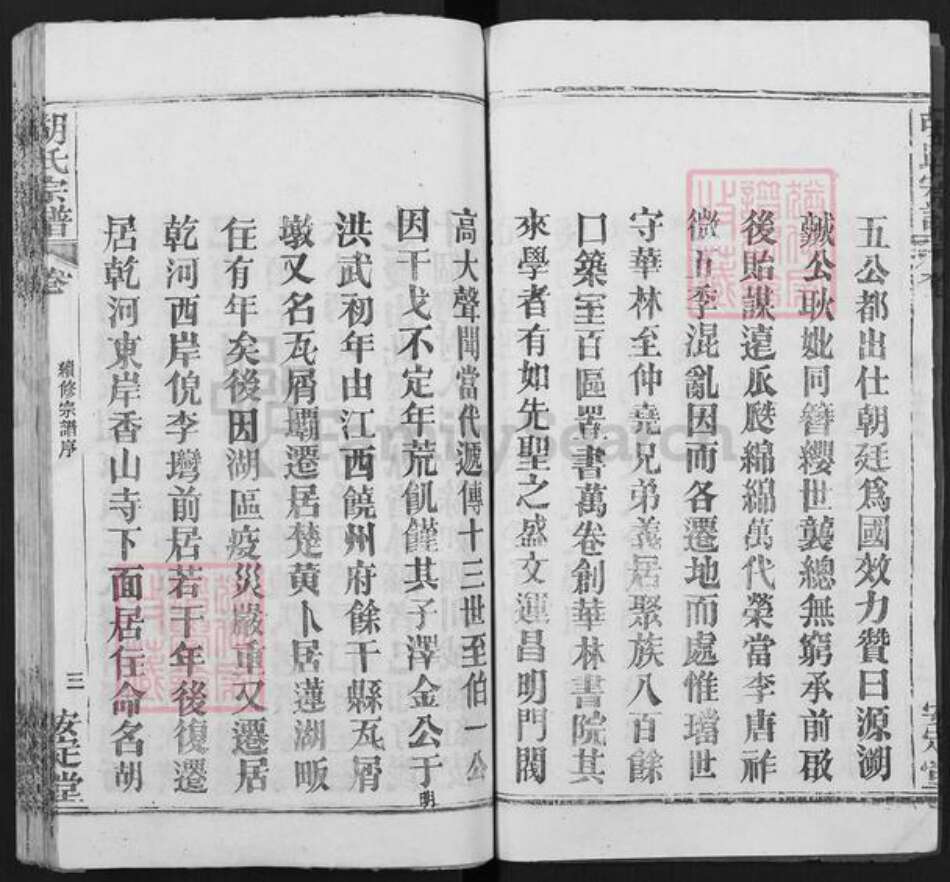 五公都出仕朝廷爲國效力贊曰源溯
虢公耿妣同簪纓世襲總無窮承前啟
後貽謀遠瓜瓞綿綿萬代榮當李唐祚
微五季混亂因而各遷地而處惟璫世
守華林至仲堯兄弟義居聚族八百餘
口築室百區畧書萬卷創華林書院其
來學者有如先聖之盛文運昌明門閥
高大聲聞當代遞傳十三世至伯一公
因干戈不定年荒飢饉其子澤金公于明
洪武初年由江西饒州府餘干縣瓦屑
墩又名瓦屑壩遷居楚黃卜居蓮湖畈
住有年矣後因湖區疫災嚴重又遷居
乾河西岸倪李塆前居若干年後復遷
居乾河東岸香山寺下面居住命名胡
胡氏宗譜
卷
續修宗譜序
三
安定堂
FamilySearch